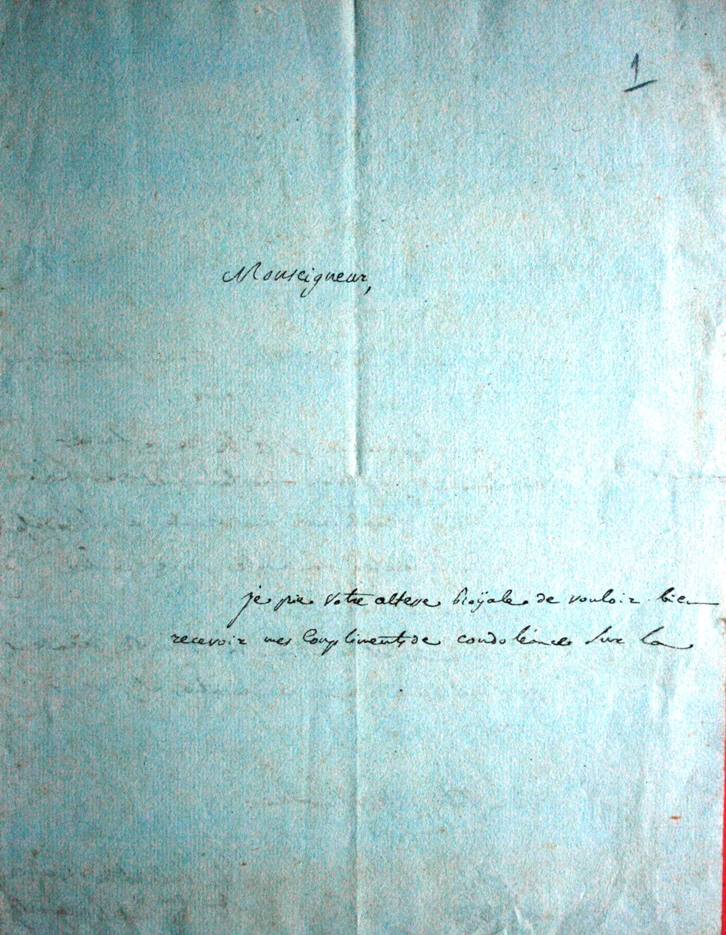 1
Monseigneur,
je prie Votre altesse Roÿale de vouloir bien
recevoir mes Compliments de condoléance Sur la